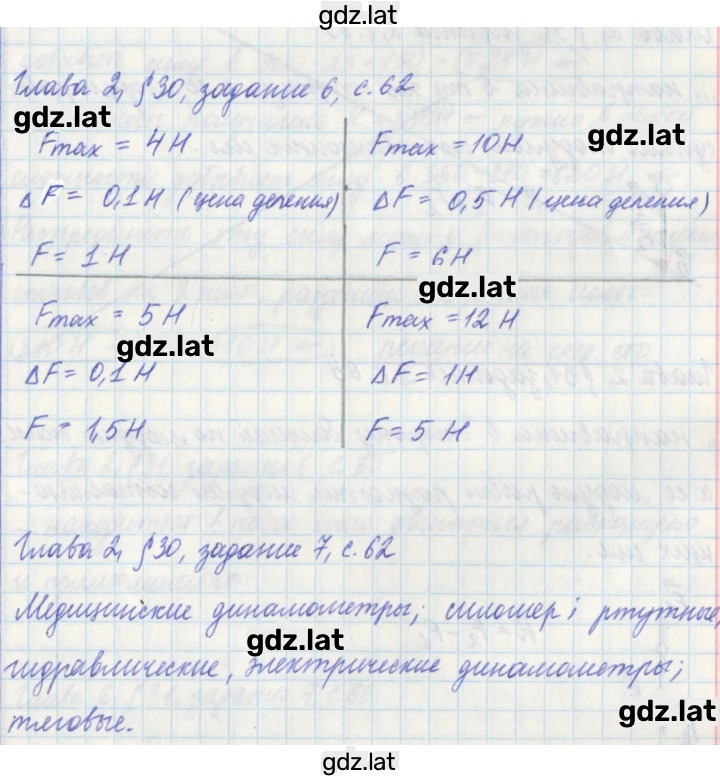 gdz.lat
Глава 2, §30, задание 6, с.62
gdz.lat
gdz.lat
Fmax = 4 Н
Fmax = 10 Н
ΔF = 0,1 Н (цена деления)
ΔF = 0,5 Н (цена деления)
F = 1 Н
F = 6 Н
gdz.lat
Fmax = 5 Н
Fmax = 12 Н
gdz.lat
ΔF = 0,1 Н
ΔF = 1 Н
F = 1,5 Н
F = 5 Н
Глава 2, §30, задание 7, с.62
Медицинские динамометры; силомер; ртутные,
gdz.lat
гидравлические, электрические динамометры;
тяговые.
gdz.lat
gdz.lat